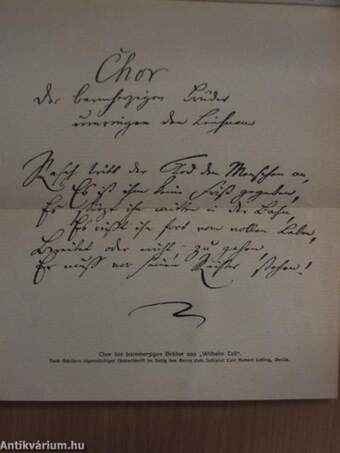 Chor
der barmherzigen Brüder
umringen den Leichnam
Rasch tritt der Tod den Menschen an,
Es ist ihm keine Frist gegeben,
Es stürzt ihn mitten in der Bahn,
Es reißt ihn fort vom vollen Leben,
Bereitet oder nicht, zu gehen,
Er muß vor seinen Richter stehen!
Chor der barmherzigen Brüder aus „Wilhelm Tell“.
Nach Schillers eigenhändiger Niederschrift im Besitz des Herrn Geh. Justizrat Carl Robert Lessing, Berlin.
Antikvárium.hu